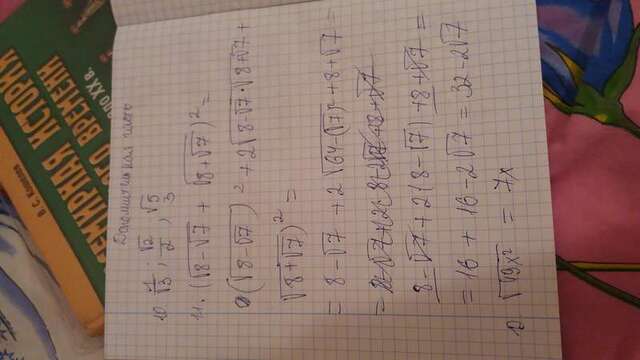 В. С. Кошелев
ВСЕМИРНАЯ ИСТОРИЯ
ВРЕМЕНИ
XX в.
Дополнительная часть
10. 1/√3 ; √2/2 , √5/3
11. (√8-√7 + √8+√7)² =
(√8-√7)² + 2√8-√7·√8+√7 +
√8+√7)² =
= 8-√7 + 2√64-(√7)² + 8+√7 =
8-√7 + 2(8-√7) + 8+√7 =
= 16 + 16-2√7 = 32-2√7
√49x² = 7x